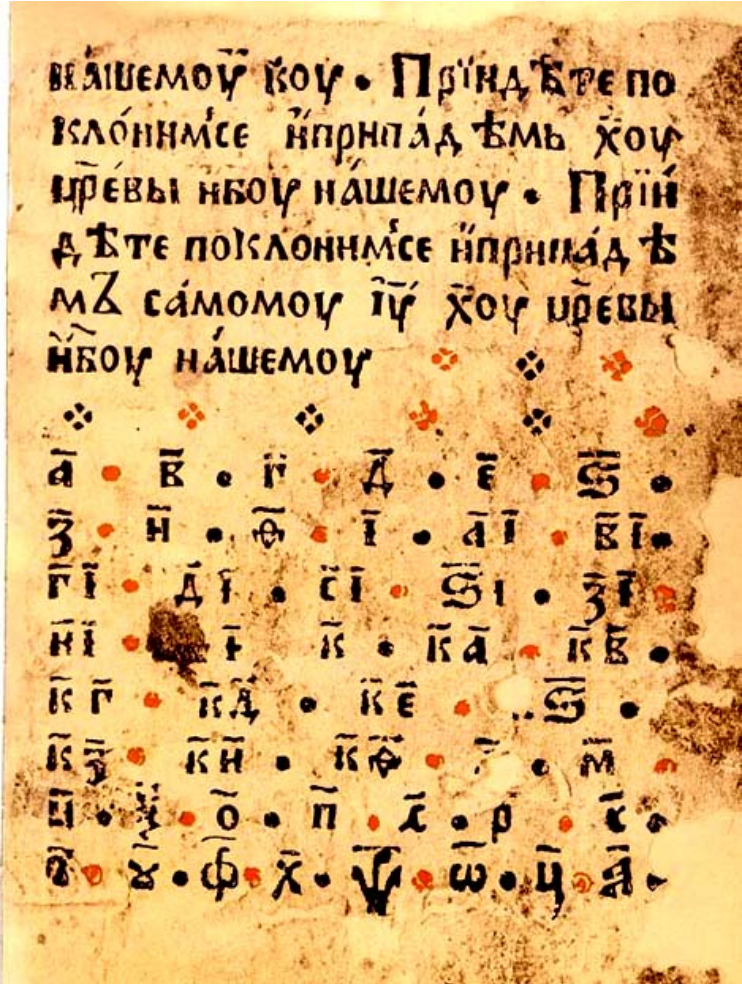 на́шемоу҆ б҃оу • Прїидѣ́те по
кло́ним́се и҆припа́дѣмь х҃оу
цр҃е́вы и҆б҃оу на́шемоу • Прїи́
дѣ́те поклоним́се и҆припа́дѣ
мꙋ са́момоу і҆у҃ х҃оу цр҃евы
и҆б҃оу на́шемоу
а҃ • в҃ • г҃ • д҃ • е҃ • ѕ҃ •
з҃ • и҃ • ѳ҃ • і҃ • а҃і҃ • в҃і҃ •
г҃і҃ • д҃і • е҃і҃ • ѕ҃і • з҃і҃ •
и҃і҃ • і҃ к҃ • к҃а҃ • к҃в҃ •
к҃г҃ • к҃д҃ • к҃е҃ • ѕ҃ •
к҃з҃ • к҃и҃ • к҃ѳ҃ • • м҃ •
н҃ • • о҃ • п҃ • ч҃ • р҃ • с҃ •
т҃ • ꙋ • ф҃ • х҃ • ѱ҃ • ѡ҃ • ц҃ • а҃ •